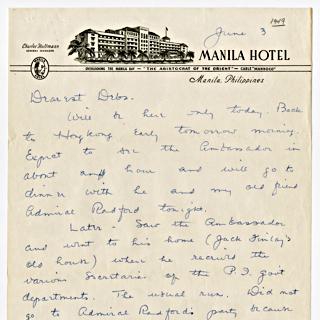 1949
June 3
Charles Holtmann
GENERAL MANAGER
MANILA HOTEL
OVERLOOKING THE MANILA BAY — "THE ARISTOCRAT OF THE ORIENT" — CABLE "MANHOCO"
Manila, Philippines
Dearest Debs.
Will be here only today. Back
to Hongkong early tomorrow morning.
Expect to see the Ambassador in
about an hour and will go to
dinner with he and my old friend
Admiral Radford tonight.
Later - Saw the Ambassador
and went to his home (Jack Finlay's
old house) where he received the
various Secretaries of the P.I. Govt
departments. The usual run. Did not
go to Admiral Radford's party because